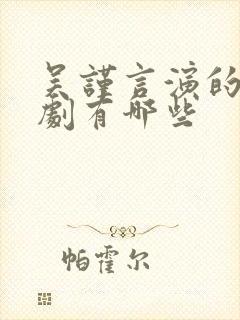 吴謹言演的
劇有哪些
帕霍尔